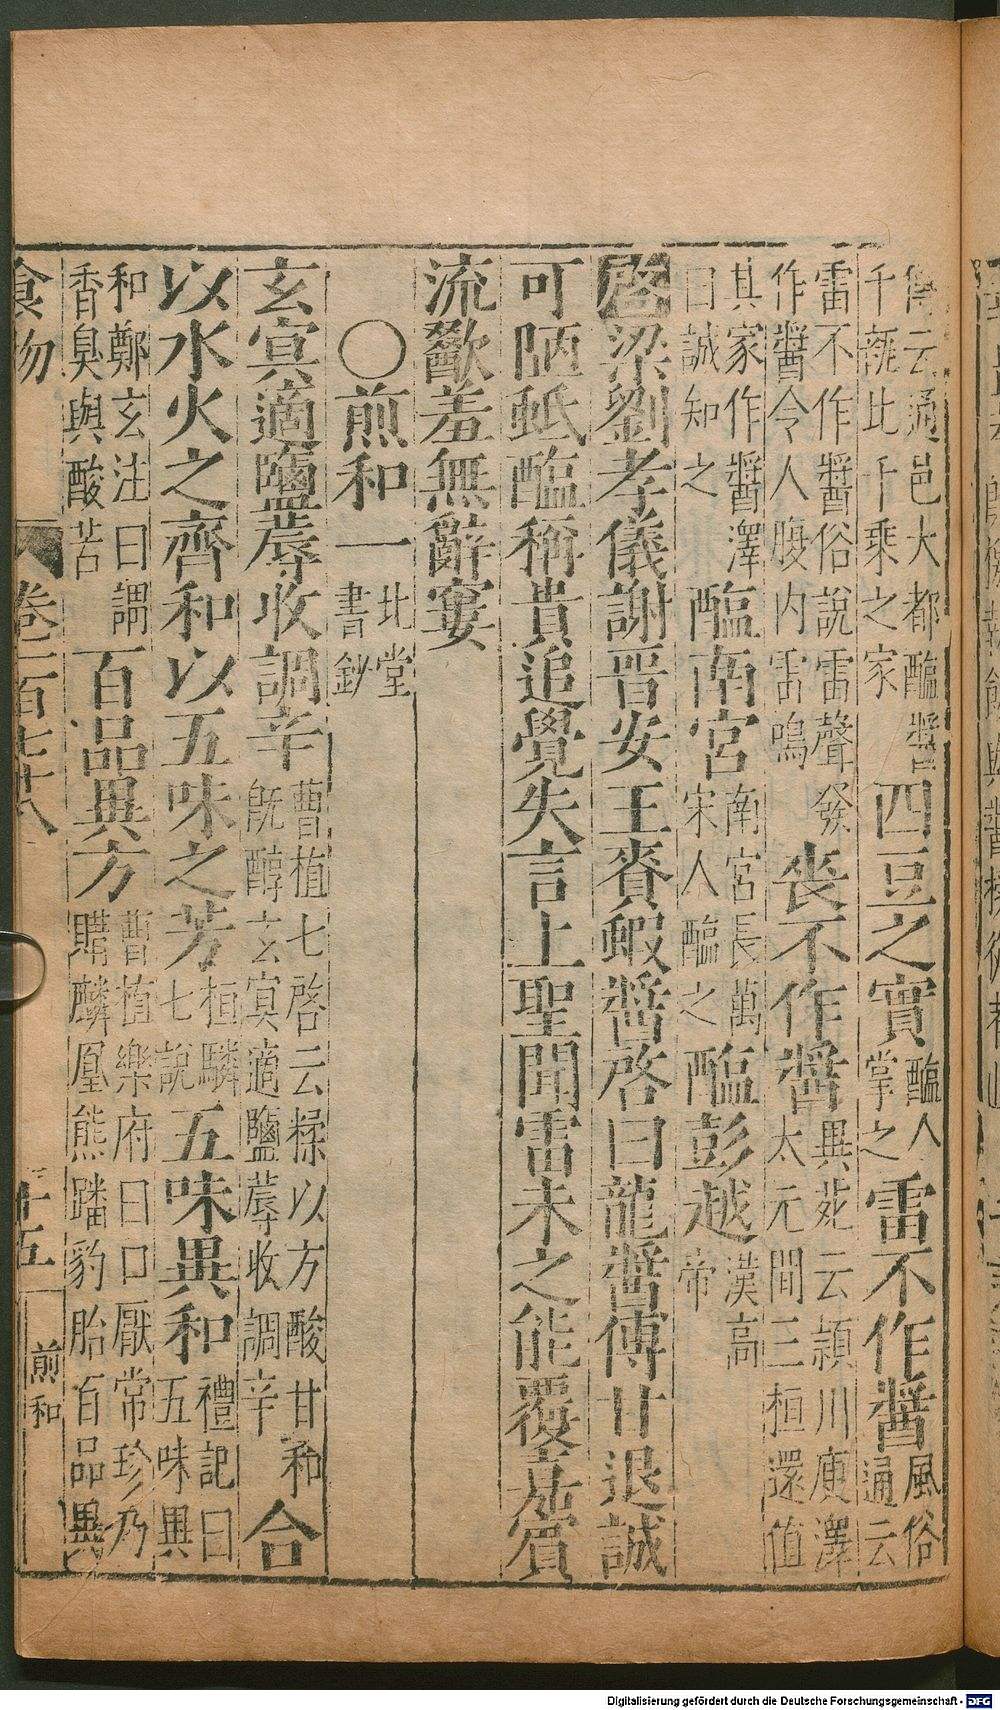 傳云通邑大都醯醬
千瓨比千乘之家
四豆之實
醯人
掌之
雷不作醬
風俗
通云
雷不作醬俗說雷聲發
作醬令人腹内雷鳴
丧不作醬
異苑云潁川庾澤
太元間三桓還值
其家作醬澤
曰誠知之
醢南宮
南宮長萬
宋人醢之
醢彭越
漢高
帝
啓梁劉孝儀謝晋安王賚蝦醬啓曰龍醬傳甘退誠
可陋蚳醢稱貴追覺失言上聖聞雷未之能覆嘉賓
流歠羞無辭窶
○煎和一
北堂
書鈔
玄㝠適鹹蓐收調辛
曹植七啓云糅以方酸甘和
旣醇玄㝠適鹹蓐收調辛
合
以水火之齊和以五味之芳
桓驎
七說
五味異和
禮記曰
五味異
和鄭玄注曰謂
香臭與酸苦
百品異方
曹植樂府曰口厭常珍乃
購麟凰熊蹯豹胎百品異
食物
卷二百七十八
二十五
煎和
Digitalisierung gefördert durch die Deutsche Forschungsgemeinschaft - DFG